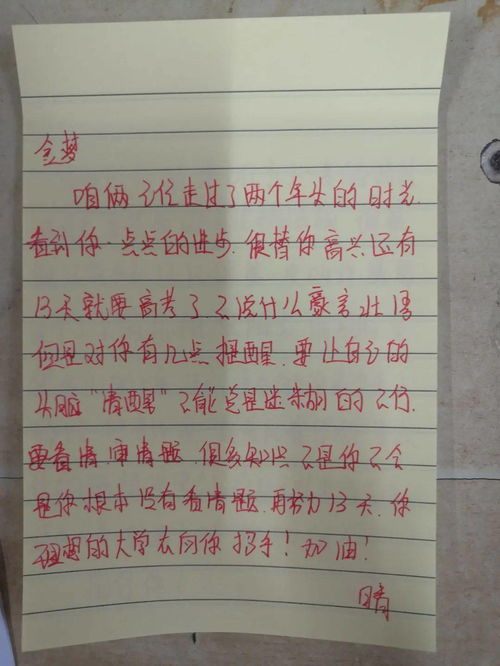 梦
咱俩已经走过了两个年头的时光
看到你一点点的进步.很替你高兴还有
13天就要高考了不说什么豪言壮语
但是对你有几点提醒.要让自己的
头脑"清醒"不能总是迷糊的不行.
要看清.审清题.很多知识点不是你不会
是你根本没有看清题.再努力13天.你
理想的大学在向你招手!加油!
晴